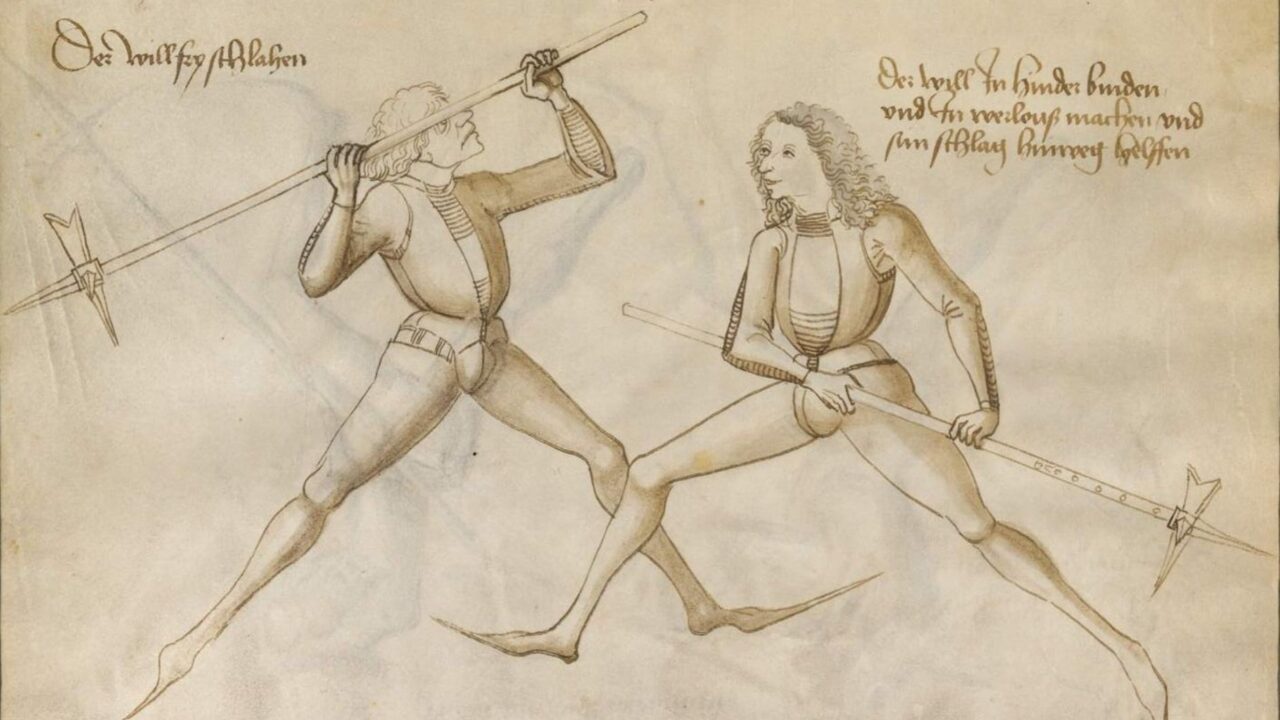 Der will fry schlahen
Der will In hinder binden
vnd In werlouß machen vnd
sin schlag hinweg helffen